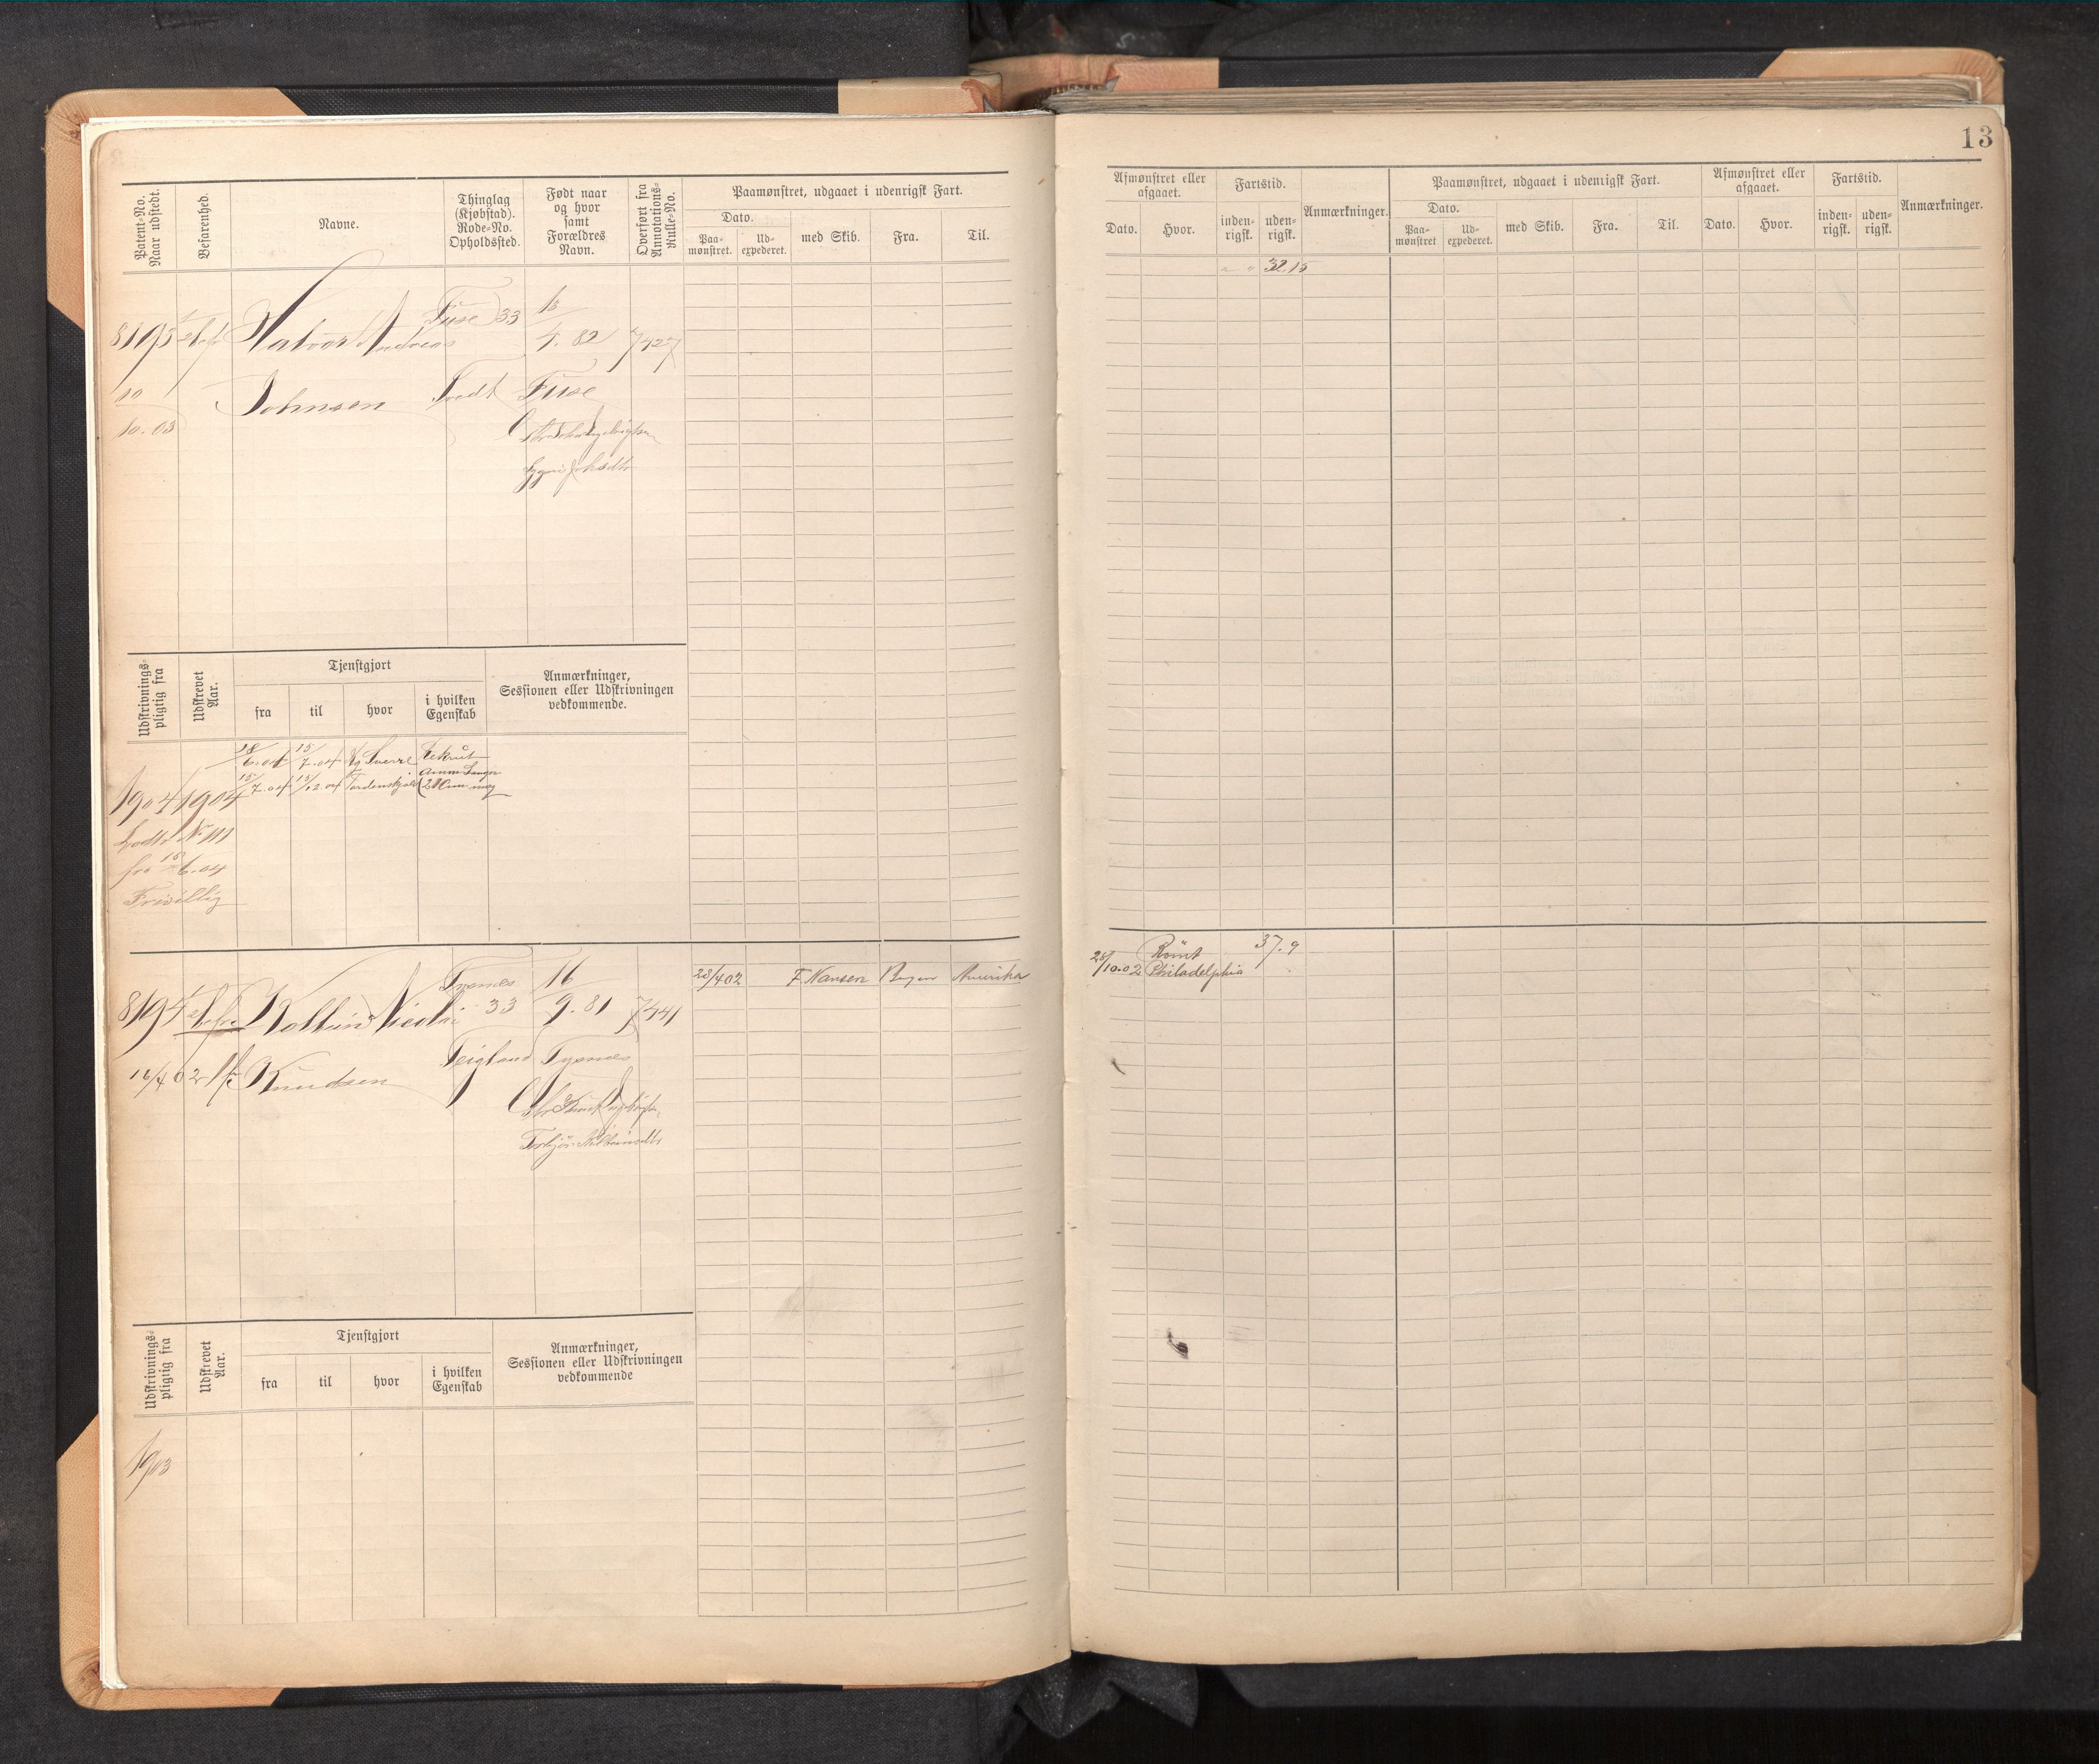 13
Patent-No. Naar udstedt.
Befarenhed.
Navne.
Thinglag (Kjøbstad). Rode-No. Opholdssted.
Født naar og hvor samt Forældres Navn.
Overført fra Annotations-Rulle-No.
Paamønstret, udgaaet i udenrigsk Fart.
Dato.
Paa-mønstret.
Ud-expederet.
med Skib.
Fra.
Til.
Afmønstret eller afgaaet.
Dato.
Hvor.
Fartstid.
inden-rigsk.
uden-rigsk.
Anmærkninger.
Paamønstret, udgaaet i udenrigsk Fart.
Dato.
Paa-mønstret
Ud-expederet.
med Skib.
Fra.
Til.
Afmønstret eller afgaaet.
Dato.
Hvor.
Fartstid.
inden-rigsk.
uden-rigsk.
Anmærkninger.
32.15
8193
Halvor Andreas
Fuse 33
15/4. 82
7427
10/10.03
Johnsen
Fuse
Udskrivnings-pligtig fra
Udskrevet Aar.
Tjenstgjort
fra
til
hvor
i hvilken Egenskab
Anmærkninger, Sessionen eller Udskrivningen vedkommende.
18/6.04 15/7.04 Sverre Rekrut
15/7.04 15/12.04 Tordenskjold
1904 1904
fra 15/6.04
Frivillig
8194
Kolbein Nicolai
Tysnes 33
16/9. 81
7441
28/4 02 F Nansen Bergen Amerika
28/10.02 Rømt Philadelphia 37.9
16/4 02
Knudsen
Teigland
Tysnes
Udskrivnings-pligtig fra
Udskrevet Aar.
Tjenstgjort
fra
til
hvor
i hvilken Egenskab
Anmærkninger, Sessionen eller Udskrivningen vedkommende
1903